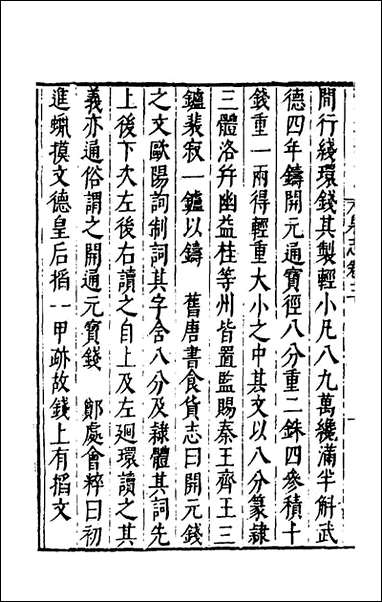 間行綫環錢其製輕小凡八九萬纔滿半斛武
德四年鑄開元通寳徑八分重二銖四參積十
錢重一兩得輕重大小之中其文以八分篆隷
三體洛幷幽益桂等州皆置監賜秦王齊王三
鑪裴寂一鑪以鑄　舊唐書食貨志曰開元錢
之文歐陽詢制詞其字含八分及隷體其詞先
上後下次左後右讀之自上及左廻環讀之其
義亦通俗謂之開通元寳錢　鄭處會粹曰初
進蠟摸文德皇后搯一甲跡故錢上有搯文